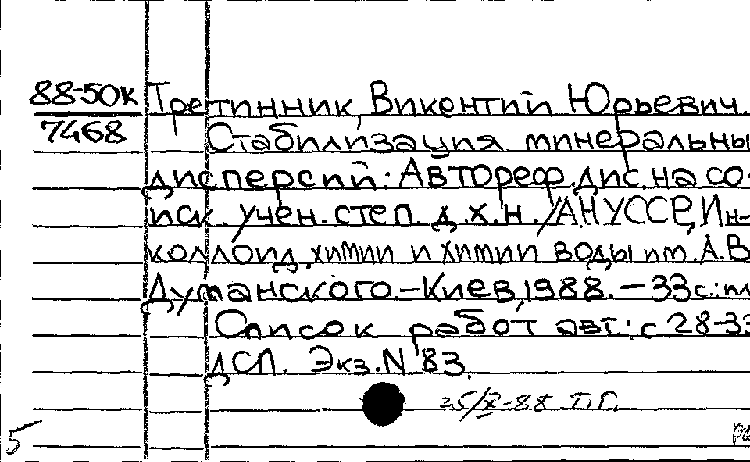 88-50к Третинник, Викентий Юрьевич.
7468 Стабилизация минеральны
дисперсий: Автореф. дис. на со-
иск. учен. степ. д.х.н. /АН УССР, Ин-
коллоид. химии и химии воды им. А.В
Думанского.-Киев, 1988.-33с.: ил
Список работ авт.: с 28-33
ДСП. Экз. N 83.
25/X-88 Т.Г.
5